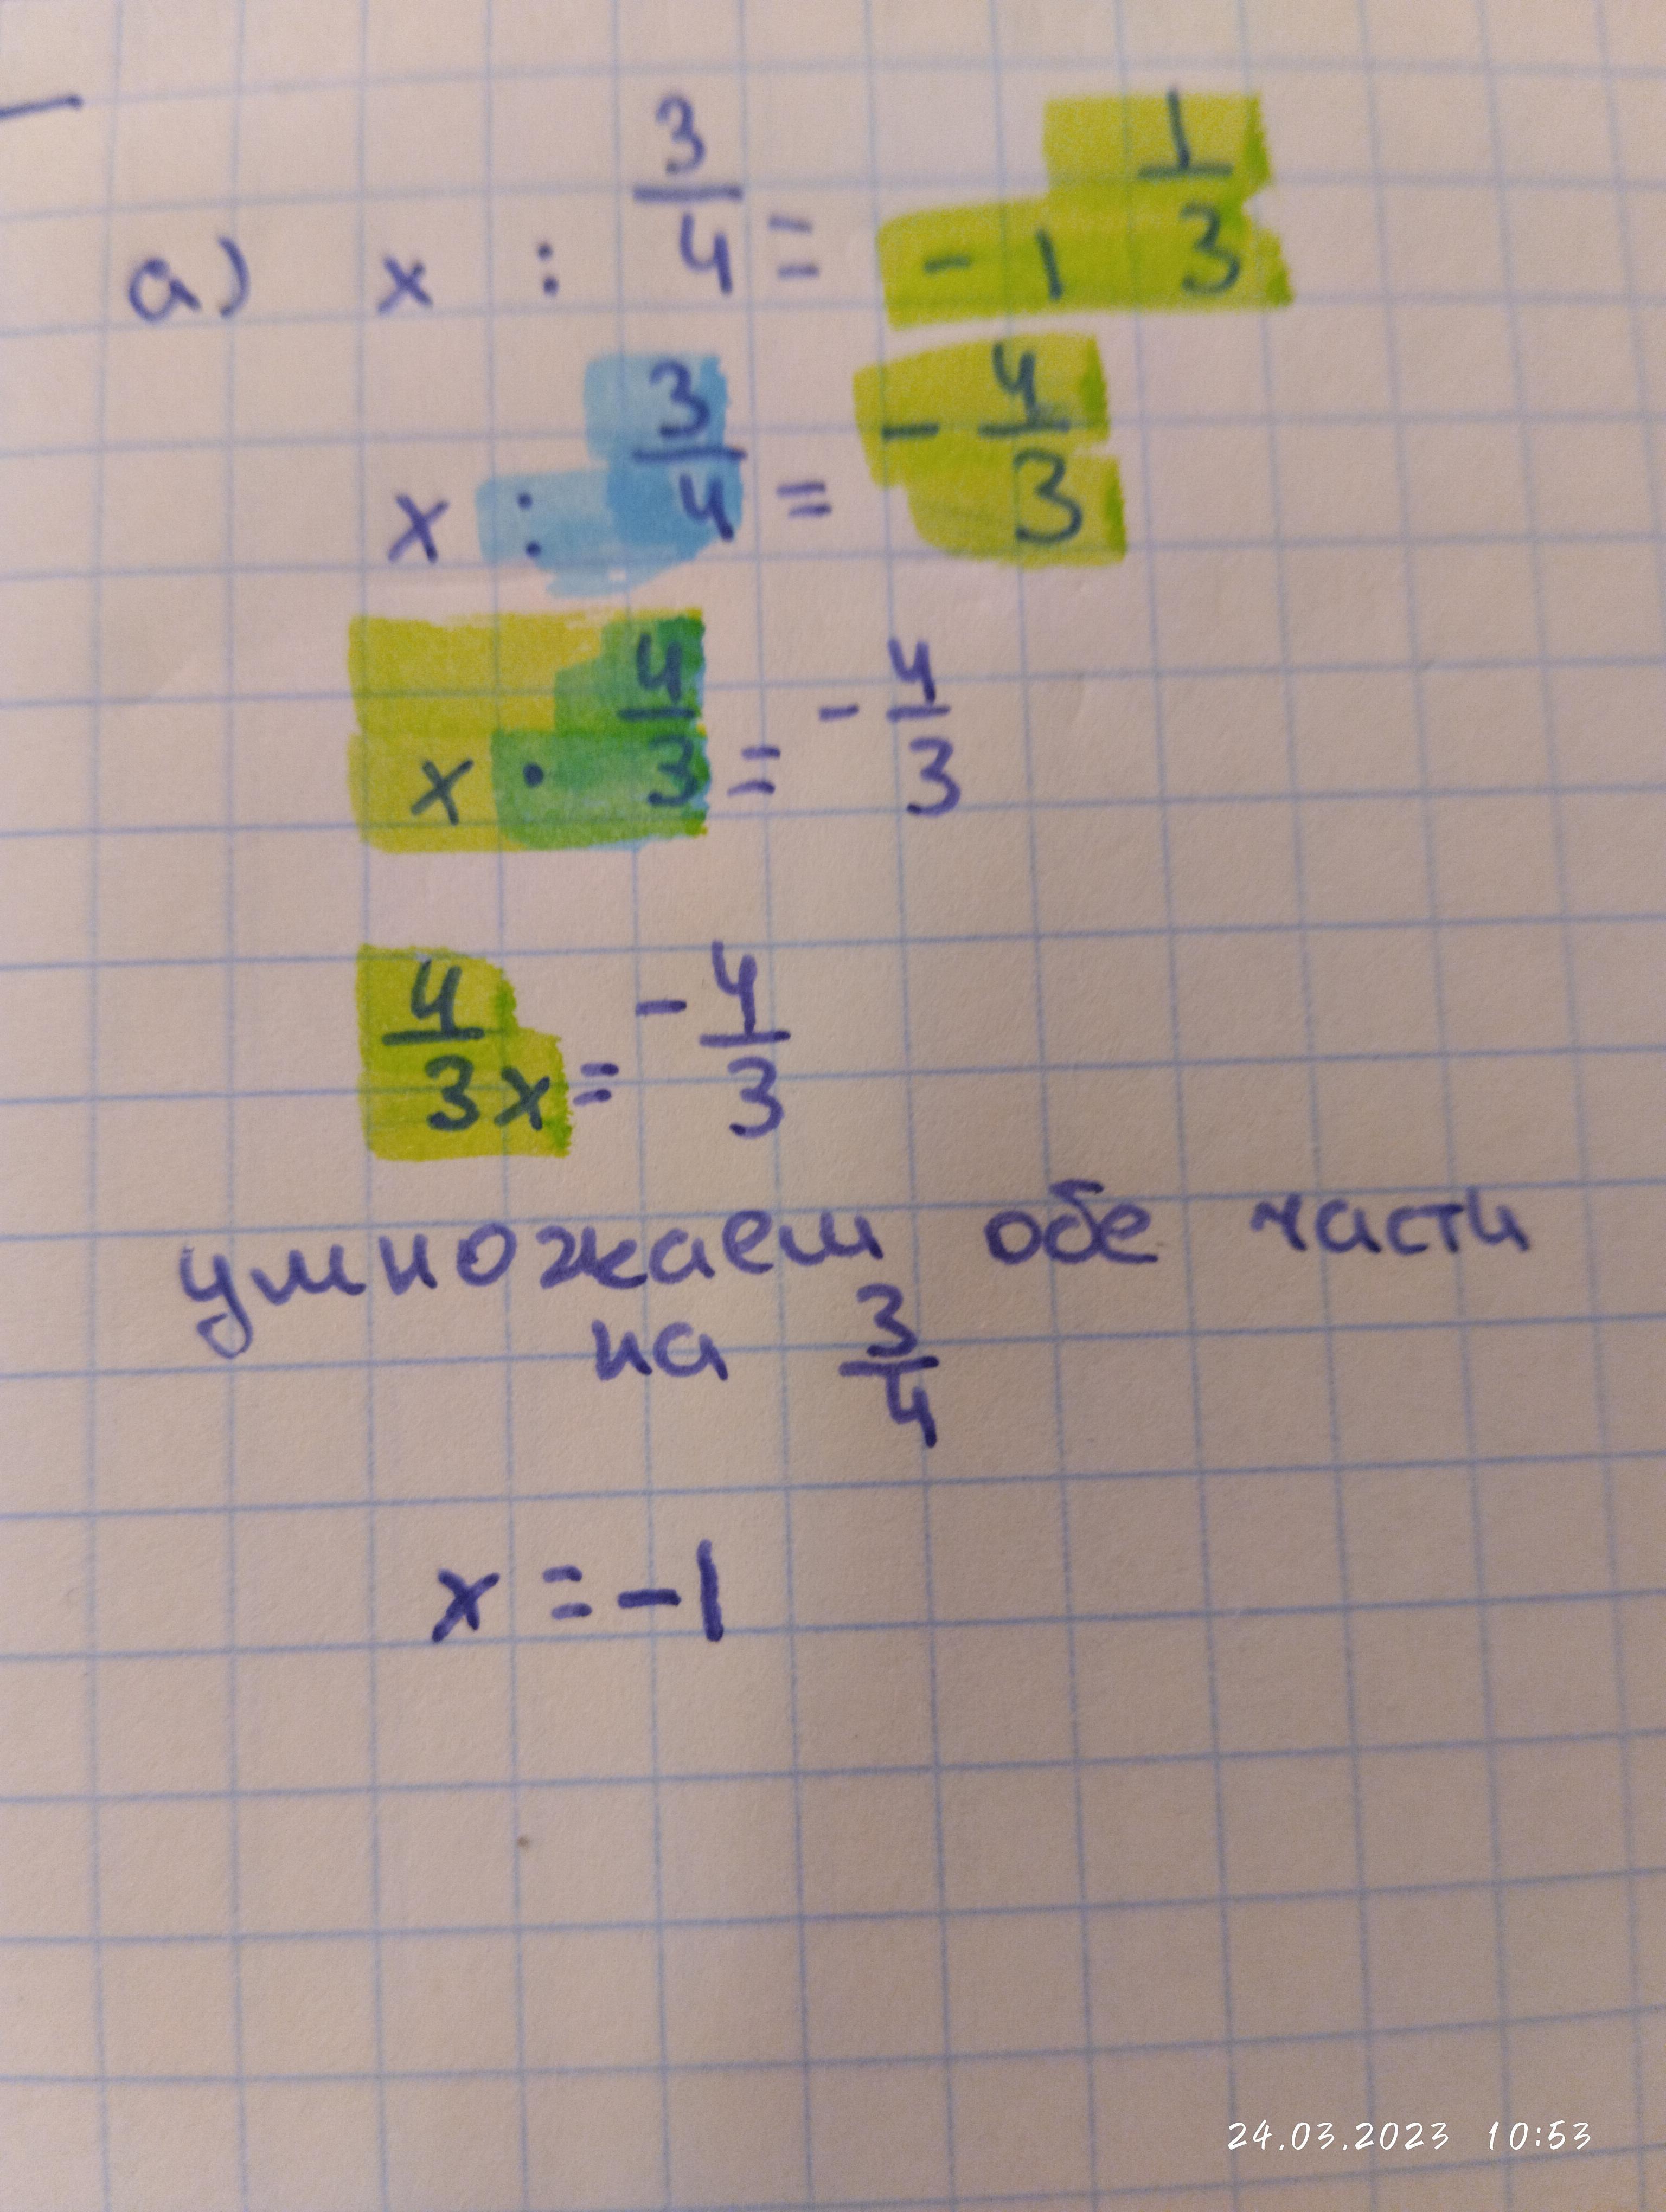 а) x : 3/4 = -1 1/3
x : 3/4 = - 4/3
x · 4/3 = - 4/3
4/3 x = - 4/3
умножаем обе части
на 3/4
x = -1
24.03.2023 10:53